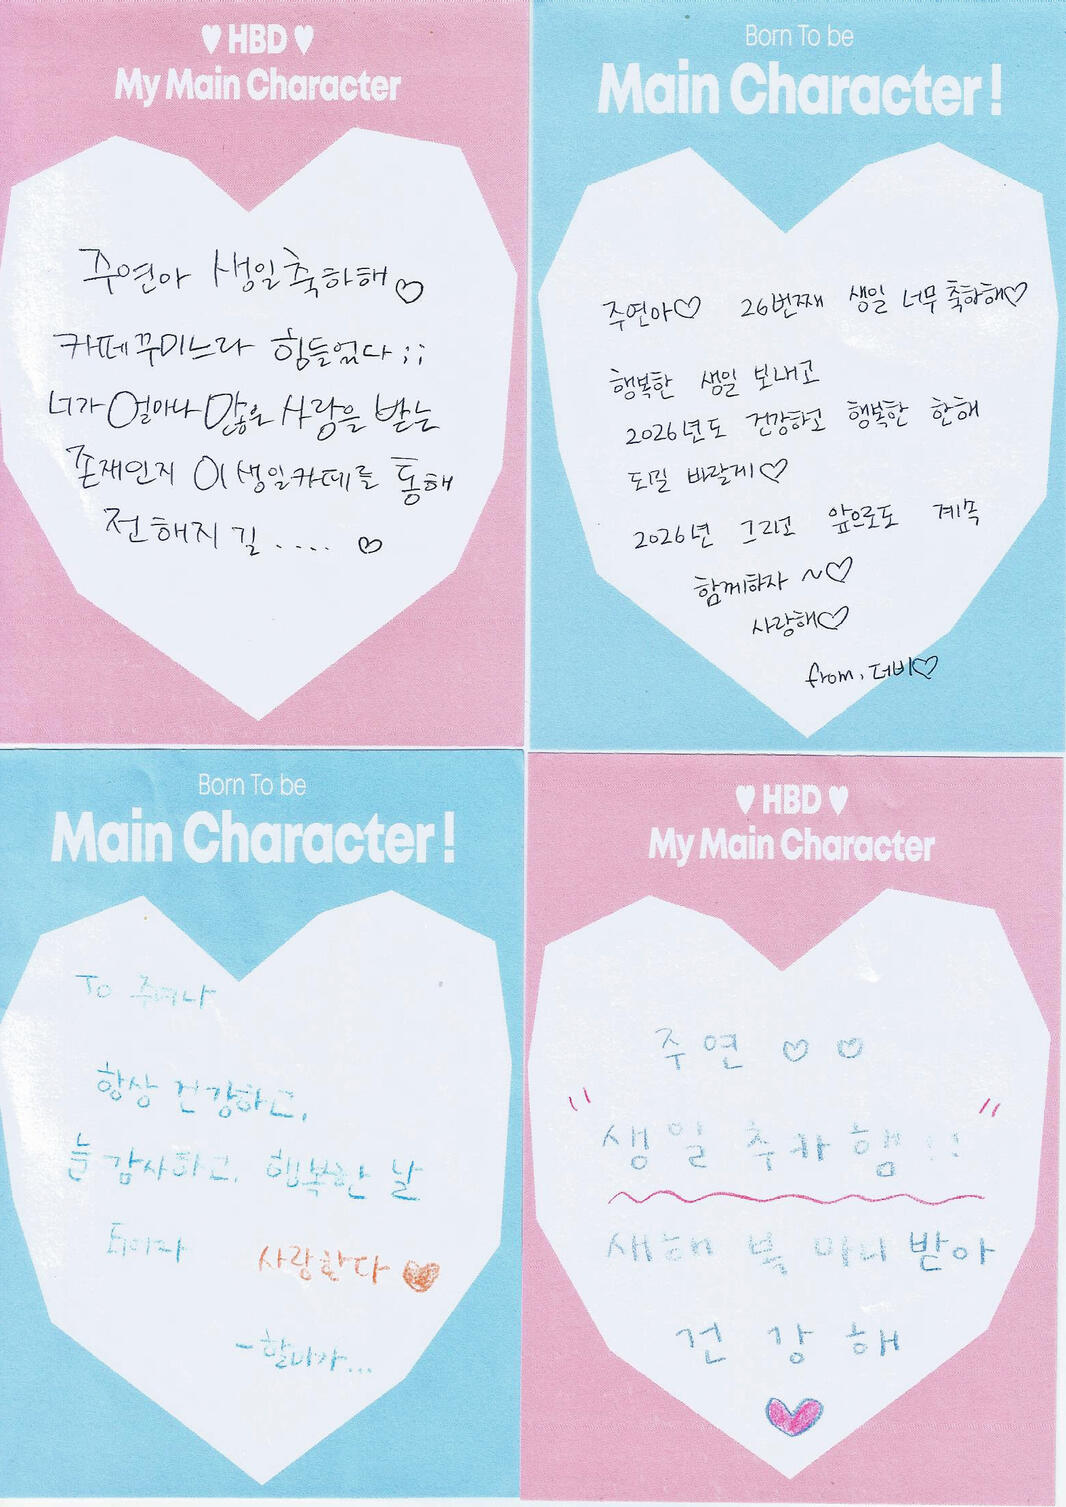 ♥ HBD ♥
My Main Character
주연아 생일축하해♡
카페꾸미느라 힘들었다;;
너가 얼마나 많은 사랑을 받는
존재인지 이 생일카페를 통해
전해지길.... ♡
Born To be
Main Character!
주연아♡ 26번째 생일 너무 축하해♡
행복한 생일 보내고
2026년도 건강하고 행복한 한해
되길 바랄게♡
2026년 그리고 앞으로도 계속
함께하자 ~♡
사랑해♡
from. 더비♡
Born To be
Main Character!
To 주여나
항상 건강하고,
늘 감사하고, 행복한 날
되어라 사랑한다 ♥
- 할미가...
♥ HBD ♥
My Main Character
주연 ♡ ♡
" 생일 추카햄!! "
새해 복 마니 받아
건강해
♥